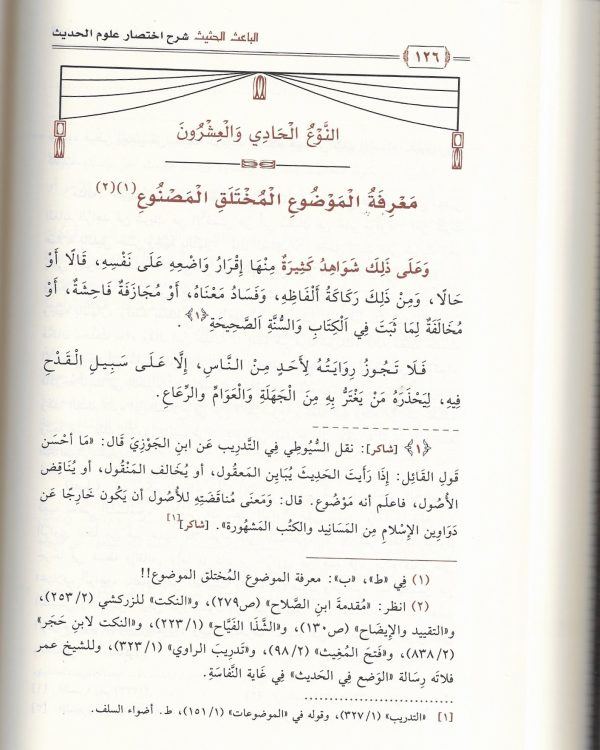 الباعث الحثيث شرح اختصار علوم الحديث
١٢٦
النَّوْعُ الْحَادِي وَالْعِشْرُونَ
مَعْرِفَةُ الْمَوْضُوعِ الْمُخْتَلَقِ الْمَصْنُوعِ (١)(٢)
وَعَلَى ذَلِكَ شَوَاهِدُ كَثِيرَةٌ مِنْهَا إِقْرَارُ وَاضِعِهِ عَلَى نَفْسِهِ، قَالًا أَوْ
حَالًا، وَمِنْ ذَلِكَ رَكَاكَةُ أَلْفَاظِهِ، وَفَسَادُ مَعْنَاهُ، أَوْ مُجَازَفَةٌ فَاحِشَةٌ، أَوْ
مُخَالَفَةٌ لِمَا ثَبَتَ فِي الْكِتَابِ وَالسُّنَّةِ الصَّحِيحَةِ ﴿١﴾.
فَلَا تَجُوزُ رِوَايَتُهُ لِأَحَدٍ مِنْ النَّاسِ، إِلَّا عَلَى سَبِيلِ الْقَدْحِ
فِيهِ، لِيَحْذَرَهُ مَنْ يَغْتَرُّ بِهِ مِنَ الْجَهَلَةِ وَالْعَوَامِّ والرِّعَاعِ.
﴿١﴾ [شاكر]: نقل السُّيُوطِي فِي التَّدرِيب عَن ابنِ الجَوْزِيّ قَال: «مَا أحْسَن
قَولِ القَائِل: إذَا رَأيتَ الحَدِيثَ يُبَايِن المَعقُول، أو يُخَالف المَنْقُول، أو يُنَاقِض
الأُصُول، فاعلَم أنه مَوْضُوع. قال: وَمَعنَى مُنَاقَضَتِه للأُصول أن يَكُون خَارِجًا عَن
دَوَاوِين الإسْلام مِن المَسَانِيد والكتُب المَشهُورة». [شاكر][١]
(١) فِي «ط»، «ب»: معرفة الموضوع المُختلق الموضوع!!
(٢) انظر: «مُقدمة ابنِ الصَّلاح» (ص٢٧٩)، و«النكت» للزركشي (٢/ ٢٥٣)،
و«التقييد والإيضَاح» (ص١٣٠)، و«الشَّذَا الفَيَّاح» (١/ ٢٢٣)، و«النكت لابنِ حَجَر»
(٢/ ٨٣٨)، و«فتحَ المُغِيث» (٢/ ٩٨)، و«تَدرِيبَ الراوي» (١/ ٣٢٣)، وللشيخ عمر
فلاتَه رِسالة «الوَضع فِي الحَديث» فِي غَاية النَّفاسَةِ.
[١] «التدريب» (١/ ٣٢٧)، وقوله في «الموضوعات» (١/ ١٥١)، ط. أضواء السلف.